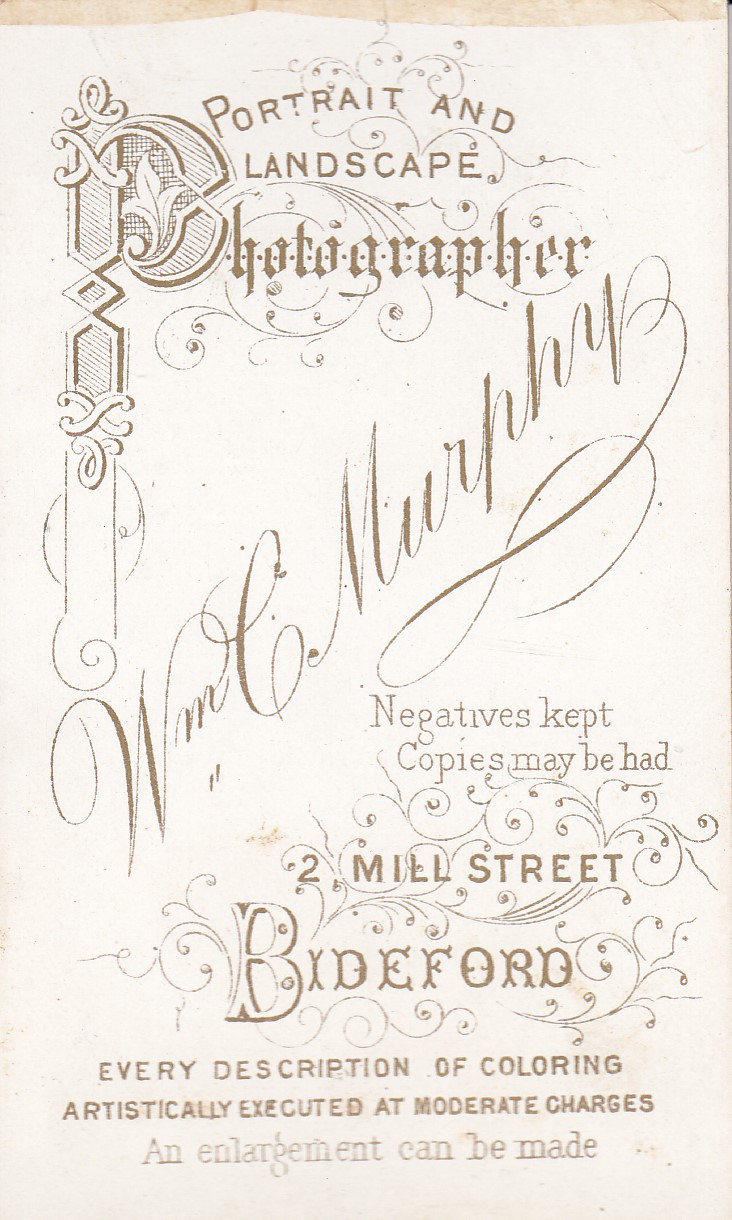 PORTRAIT AND
LANDSCAPE
Photographer
Wm C. Murphy
Negatives kept
Copies may be had
2, MILL STREET
BIDEFORD
EVERY DESCRIPTION OF COLORING
ARTISTICALLY EXECUTED AT MODERATE CHARGES
An enlargement can be made